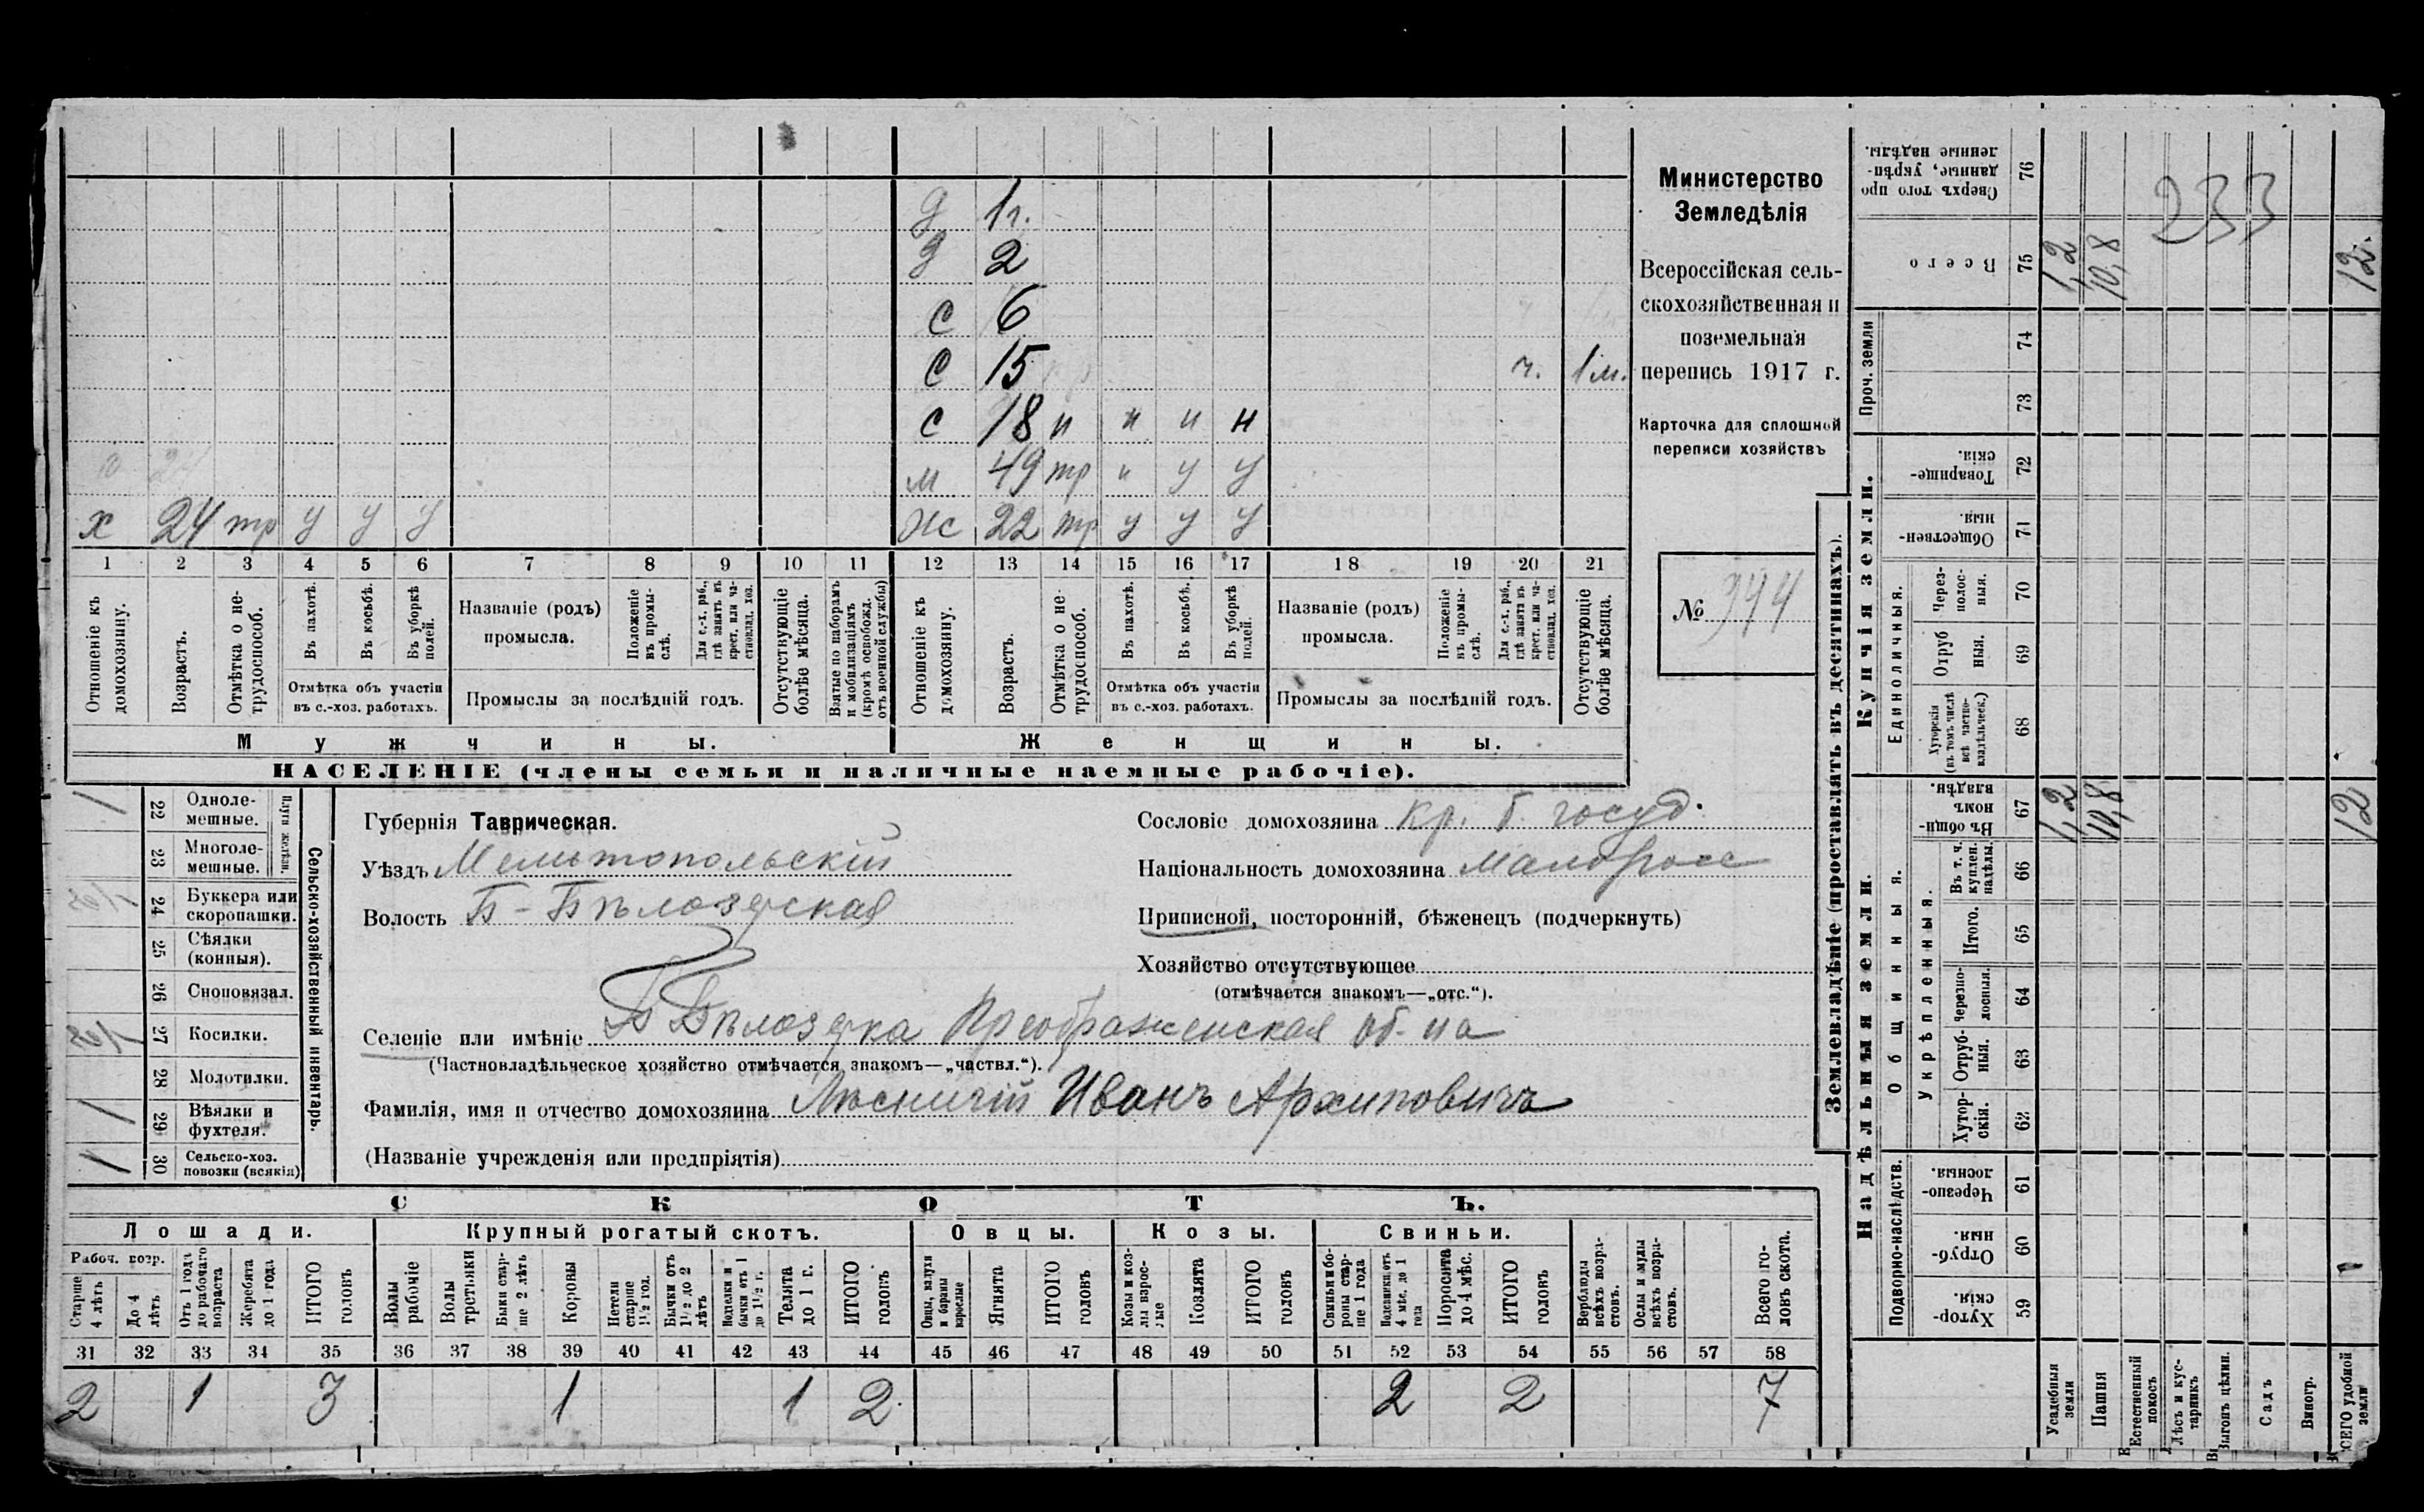 д 1 г.
д 2
с 6
с 15 ч. 1 м.
с 18 н н н н
м 49 тр н у у
х 24 тр у у у ж 22 тр у у у
1 2 3 4 5 6 7 8 9 10 11 12 13 14 15 16 17 18 19 20 21
Отношеніе къ домохозяину.
Возрастъ.
Отмѣтка о нетрудоспособ.
Въ пахотѣ.
Въ косьбѣ.
Въ уборкѣ полей.
Отмѣтка объ участіи
въ с.-хоз. работахъ.
Названіе (родъ)
промысла.
Положеніе въ промыслѣ.
Для с.-х. раб., гдѣ занятъ въ крест. или частновлад. хоз.
Промыслы за послѣдній годъ.
Отсутствующіе болѣе мѣсяца.
Взятые по наборамъ и мобилизаціямъ (кромѣ освобожд. отъ военной службы)
Отношеніе къ домохозяину.
Возрастъ.
Отмѣтка о нетрудоспособ.
Въ пахотѣ.
Въ косьбѣ.
Въ уборкѣ полей.
Отмѣтка объ участіи
въ с.-хоз. работахъ.
Названіе (родъ)
промысла.
Положеніе въ промыслѣ.
Для с.-х. раб., гдѣ занята въ крест. или частновлад. хоз.
Промыслы за послѣдній годъ.
Отсутствующіе болѣе мѣсяца.
Мужчины. Женщины.
НАСЕЛЕНІЕ (члены семьи и наличные наемные рабочіе).
Министерство
Земледѣлія
Всероссійская сель-
скохозяйственная и
поземельная
перепись 1917 г.
Карточка для сплошной
переписи хозяйствъ
№ 344
Сельско-хозяйственный инвентарь.
Плуги желѣзн.
1 22 Одноле-
мешные.
23 Многоле-
мешные.
24 Буккера или
скоропашки.
25 Сѣялки
(конныя).
26 Сноповязал.
27 Косилки.
28 Молотилки.
1 29 Вѣялки и
фухтеля.
1 30 Сельско-хоз.
повозки (всякія)
Губернія Таврическая.
Уѣздъ Мелитопольскій
Волость Б-Бѣлозерская
Селеніе или имѣніе Б Бѣлозерка Преображенская об-на
(Частновладѣльческое хозяйство отмѣчается знакомъ—„частвл.“).
Фамилія, имя и отчество домохозяина Лѣсничій Иванъ Архиповичъ
(Названіе учрежденія или предпріятія)
Сословіе домохозяина кр. б. госуд.
Національность домохозяина малоросс
Приписной, посторонній, бѣженецъ (подчеркнуть)
Хозяйство отсутствующее
(отмѣчается знакомъ—„отс.“).
СКОТЪ.
Лошади. Крупный рогатый скотъ. Овцы. Козы. Свиньи.
Рабоч. возр.
Старше 4 лѣтъ
До 4 лѣтъ
Отъ 1 года до рабочаго возраста
Жеребята до 1 года
ИТОГО головъ
Волы рабочіе
Волы третьяки
Быки старше 2 лѣтъ
Коровы
Нетели старше 1½ год.
Бычки отъ 1½ до 2 лѣтъ
Телята до 1 г.
ИТОГО головъ
Ягнята
ИТОГО головъ
Козлята
ИТОГО головъ
Свиньи боровы старше 1 года
Поросята до 4 мѣс.
ИТОГО головъ
Верблюды всѣхъ возрастовъ.
Ослы и мулы всѣхъ возрастовъ.
Всего головъ скота.
31 32 33 34 35 36 37 38 39 40 41 42 43 44 45 46 47 48 49 50 51 52 53 54 55 56 57 58
2 1 3 1 1 2 2 2 7
Землевладѣніе (проставлять въ десятинахъ).
Надѣльныя земли. Купчія земли.
Проч. земли
Подворно-наслѣдств.
Общинныя.
Укрѣпленныя.
Единоличныя.
Хуторскія. 59
Отрубныя. 60
Черезполосныя. 61
Хуторскія. 62
Отрубныя. 63
Черезполосныя. 64
Итого. 65
Въ т. ч. куплен. надѣлы. 66
Въ общинномъ владѣн. 67 1,2 10,8 12
Хуторскія (въ томъ числѣ всѣ частновладѣльческ.) 68
Отрубныя. 69
Черезполосныя. 70
Общественныя. 71
Товарищескія. 72
73
74
Всего 75 1,2 10,8 12.
Сверхъ того проданные, укрѣпленные надѣлы. 76
233
Усадебныя земли
Пашня
Естественный покосъ
Лѣсъ и кустарникъ
Выгонъ цѣлин.
Садъ
Виногр.
ВСЕГО удобной земли